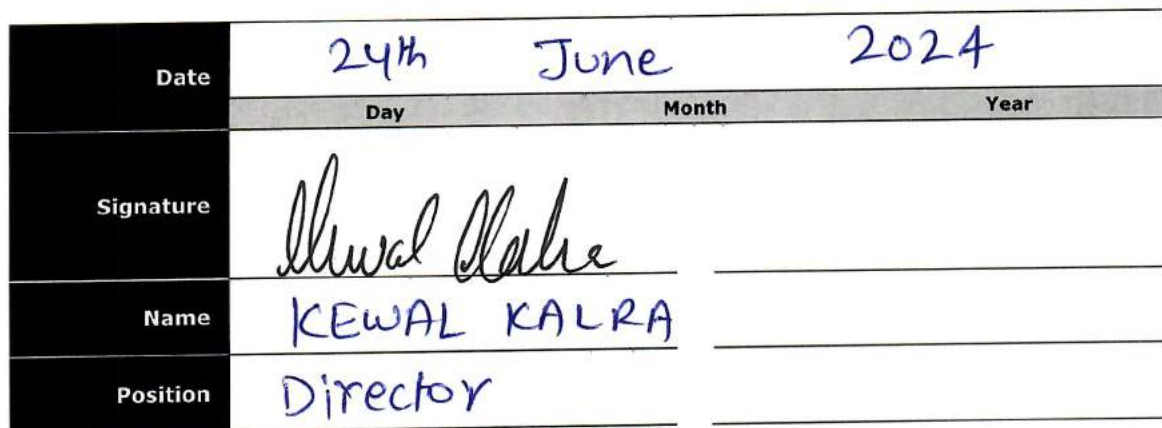 Date 24th June 2024
Day Month Year
Signature Kewal Kalra
Name KEWAL KALRA
Position Director